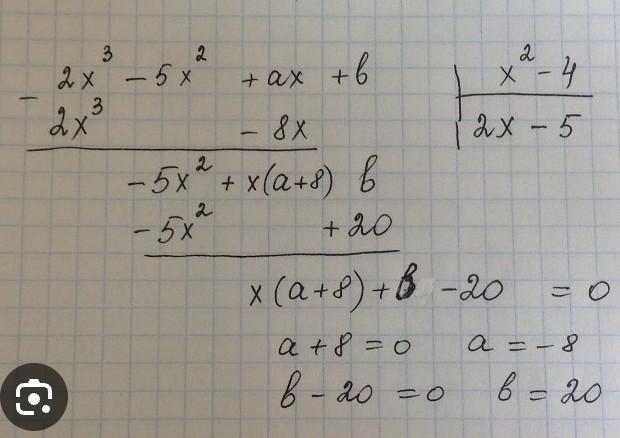 2x³ - 5x² + ax + b | x² - 4
- 2x³ - 8x | 2x - 5
- 5x² + x(a+8) b
- 5x² + 20
x(a+8) + b - 20 = 0
a + 8 = 0 a = - 8
b - 20 = 0 b = 20